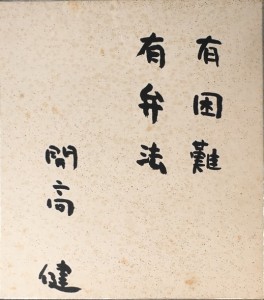 有困難
有弁法
開高
健